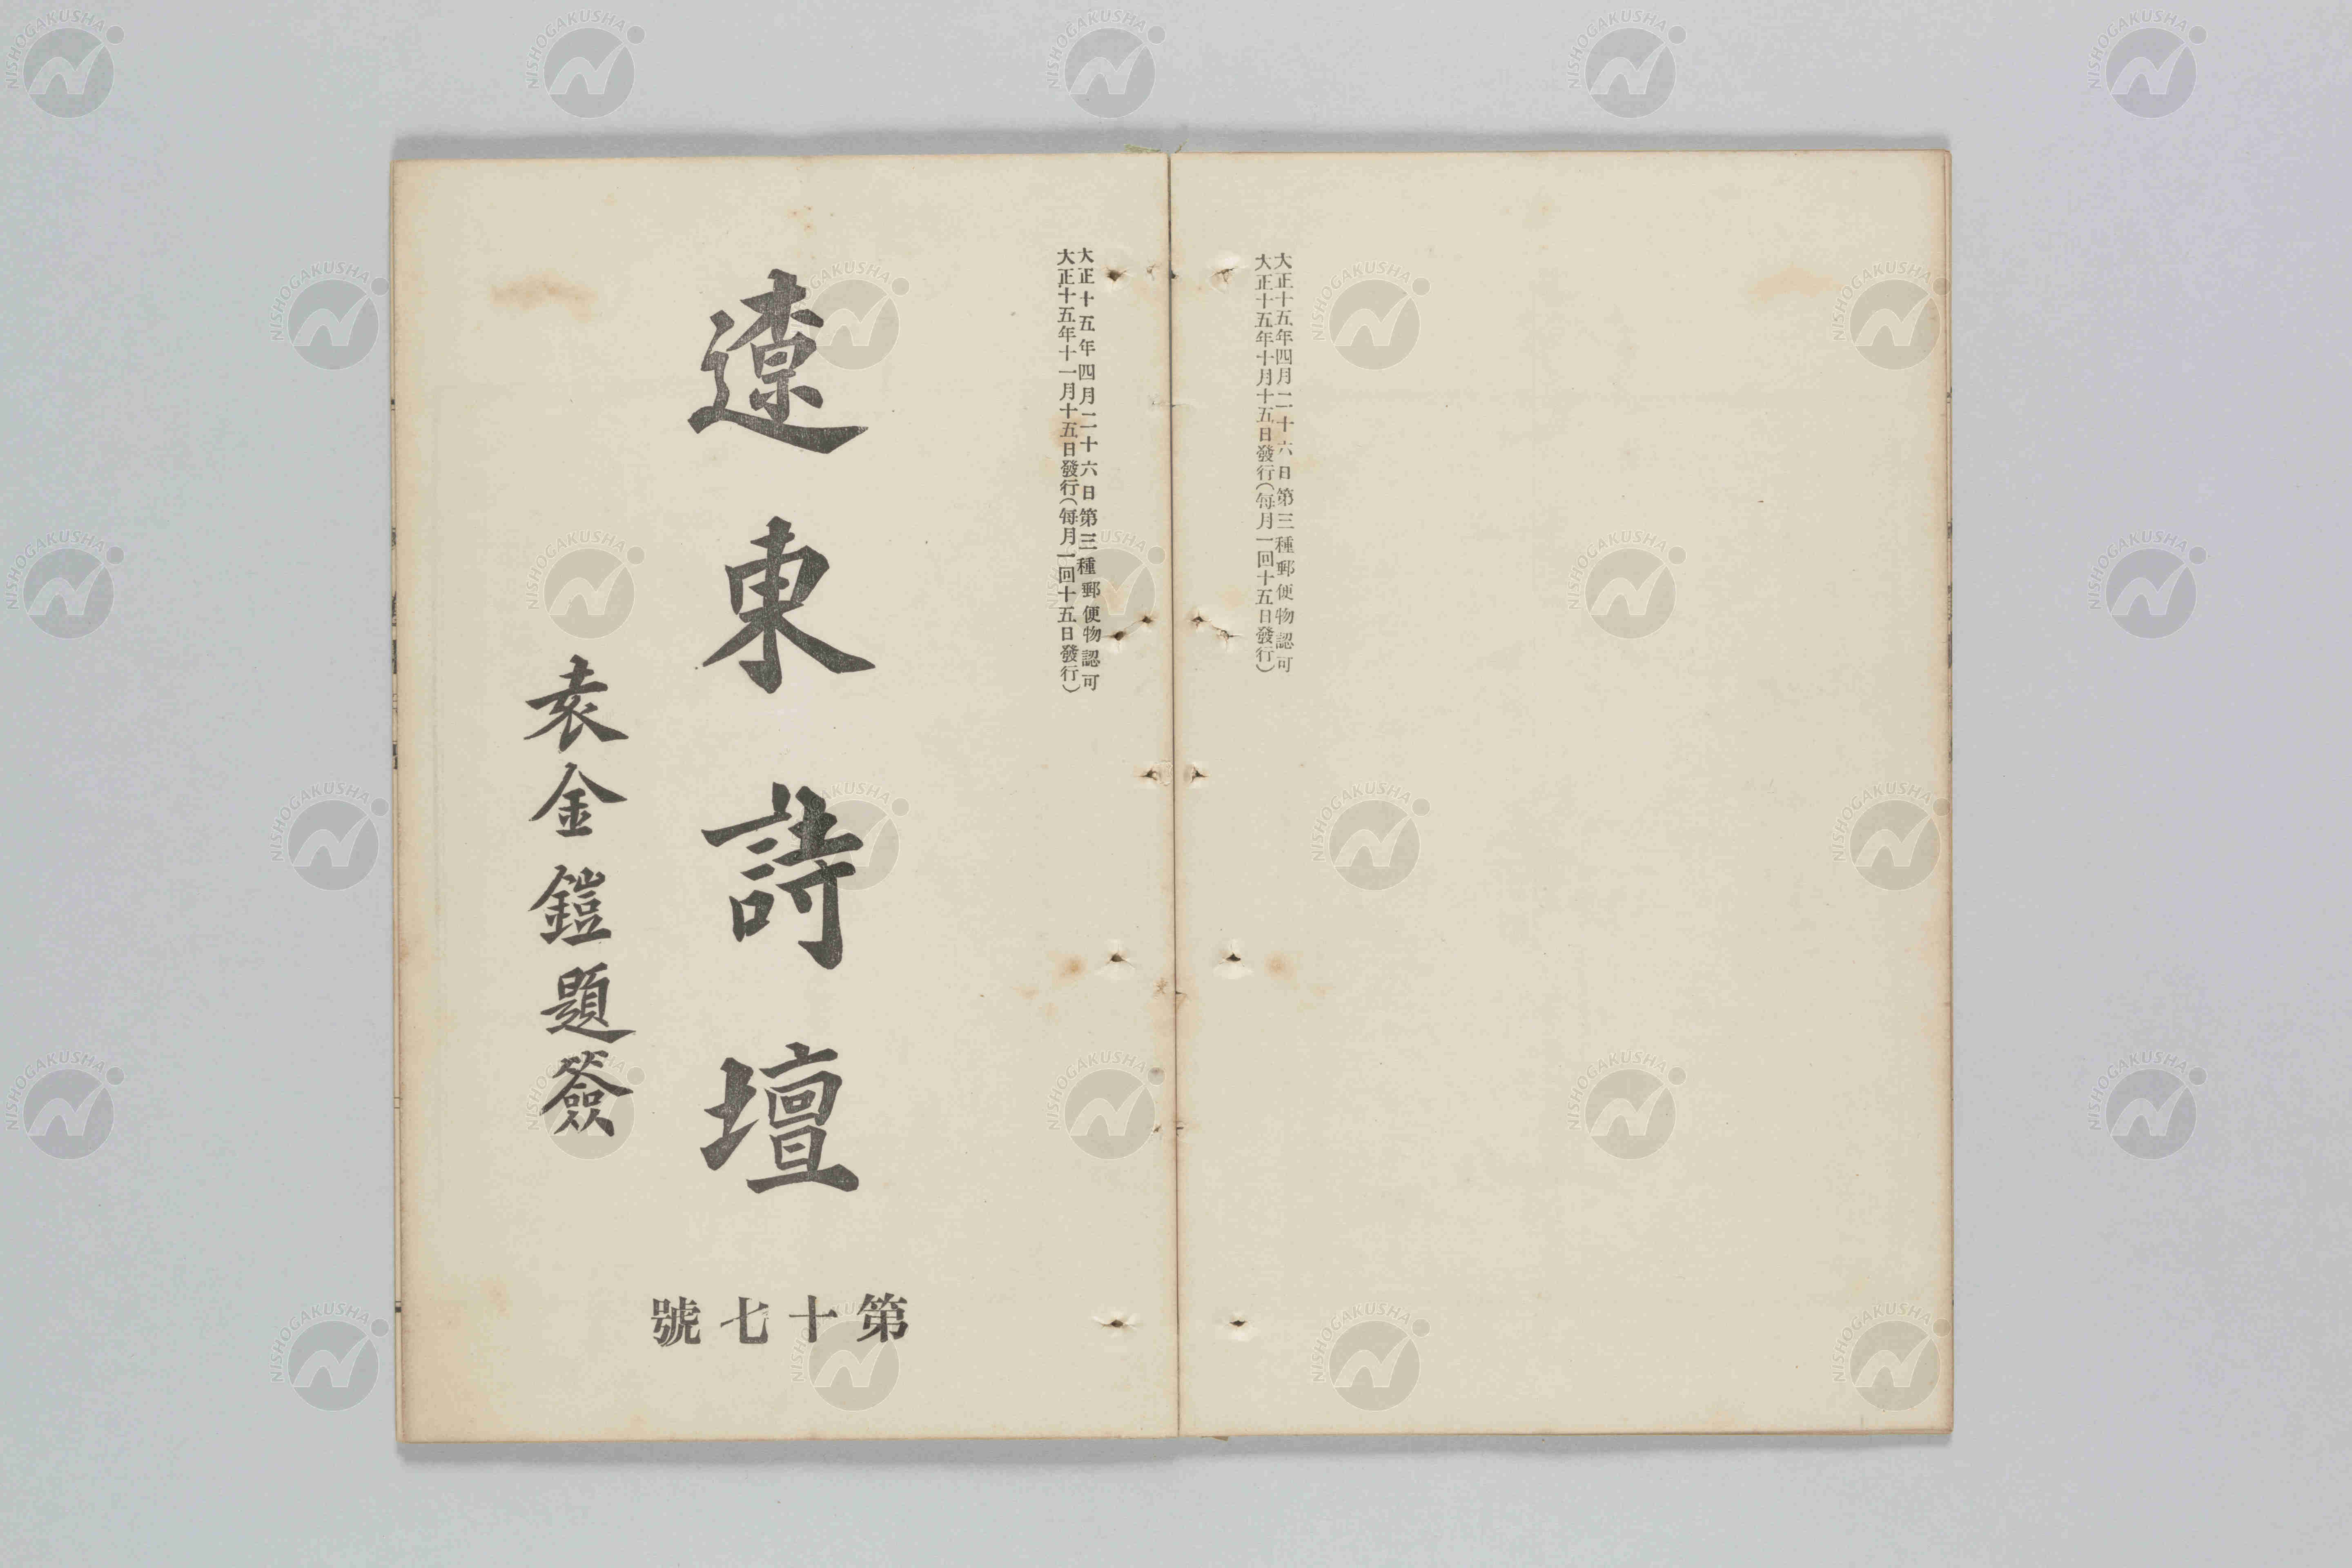 大正十五年四月二十六日第三種郵便物認可
大正十五年十月十五日發行(每月一回十五日發行)
大正十五年四月二十六日第三種郵便物認可
大正十五年十一月十五日發行(每月一回十五日發行)
遼東詩壇
袁金鎧題簽
第十七號
NISHOGAKUSHA